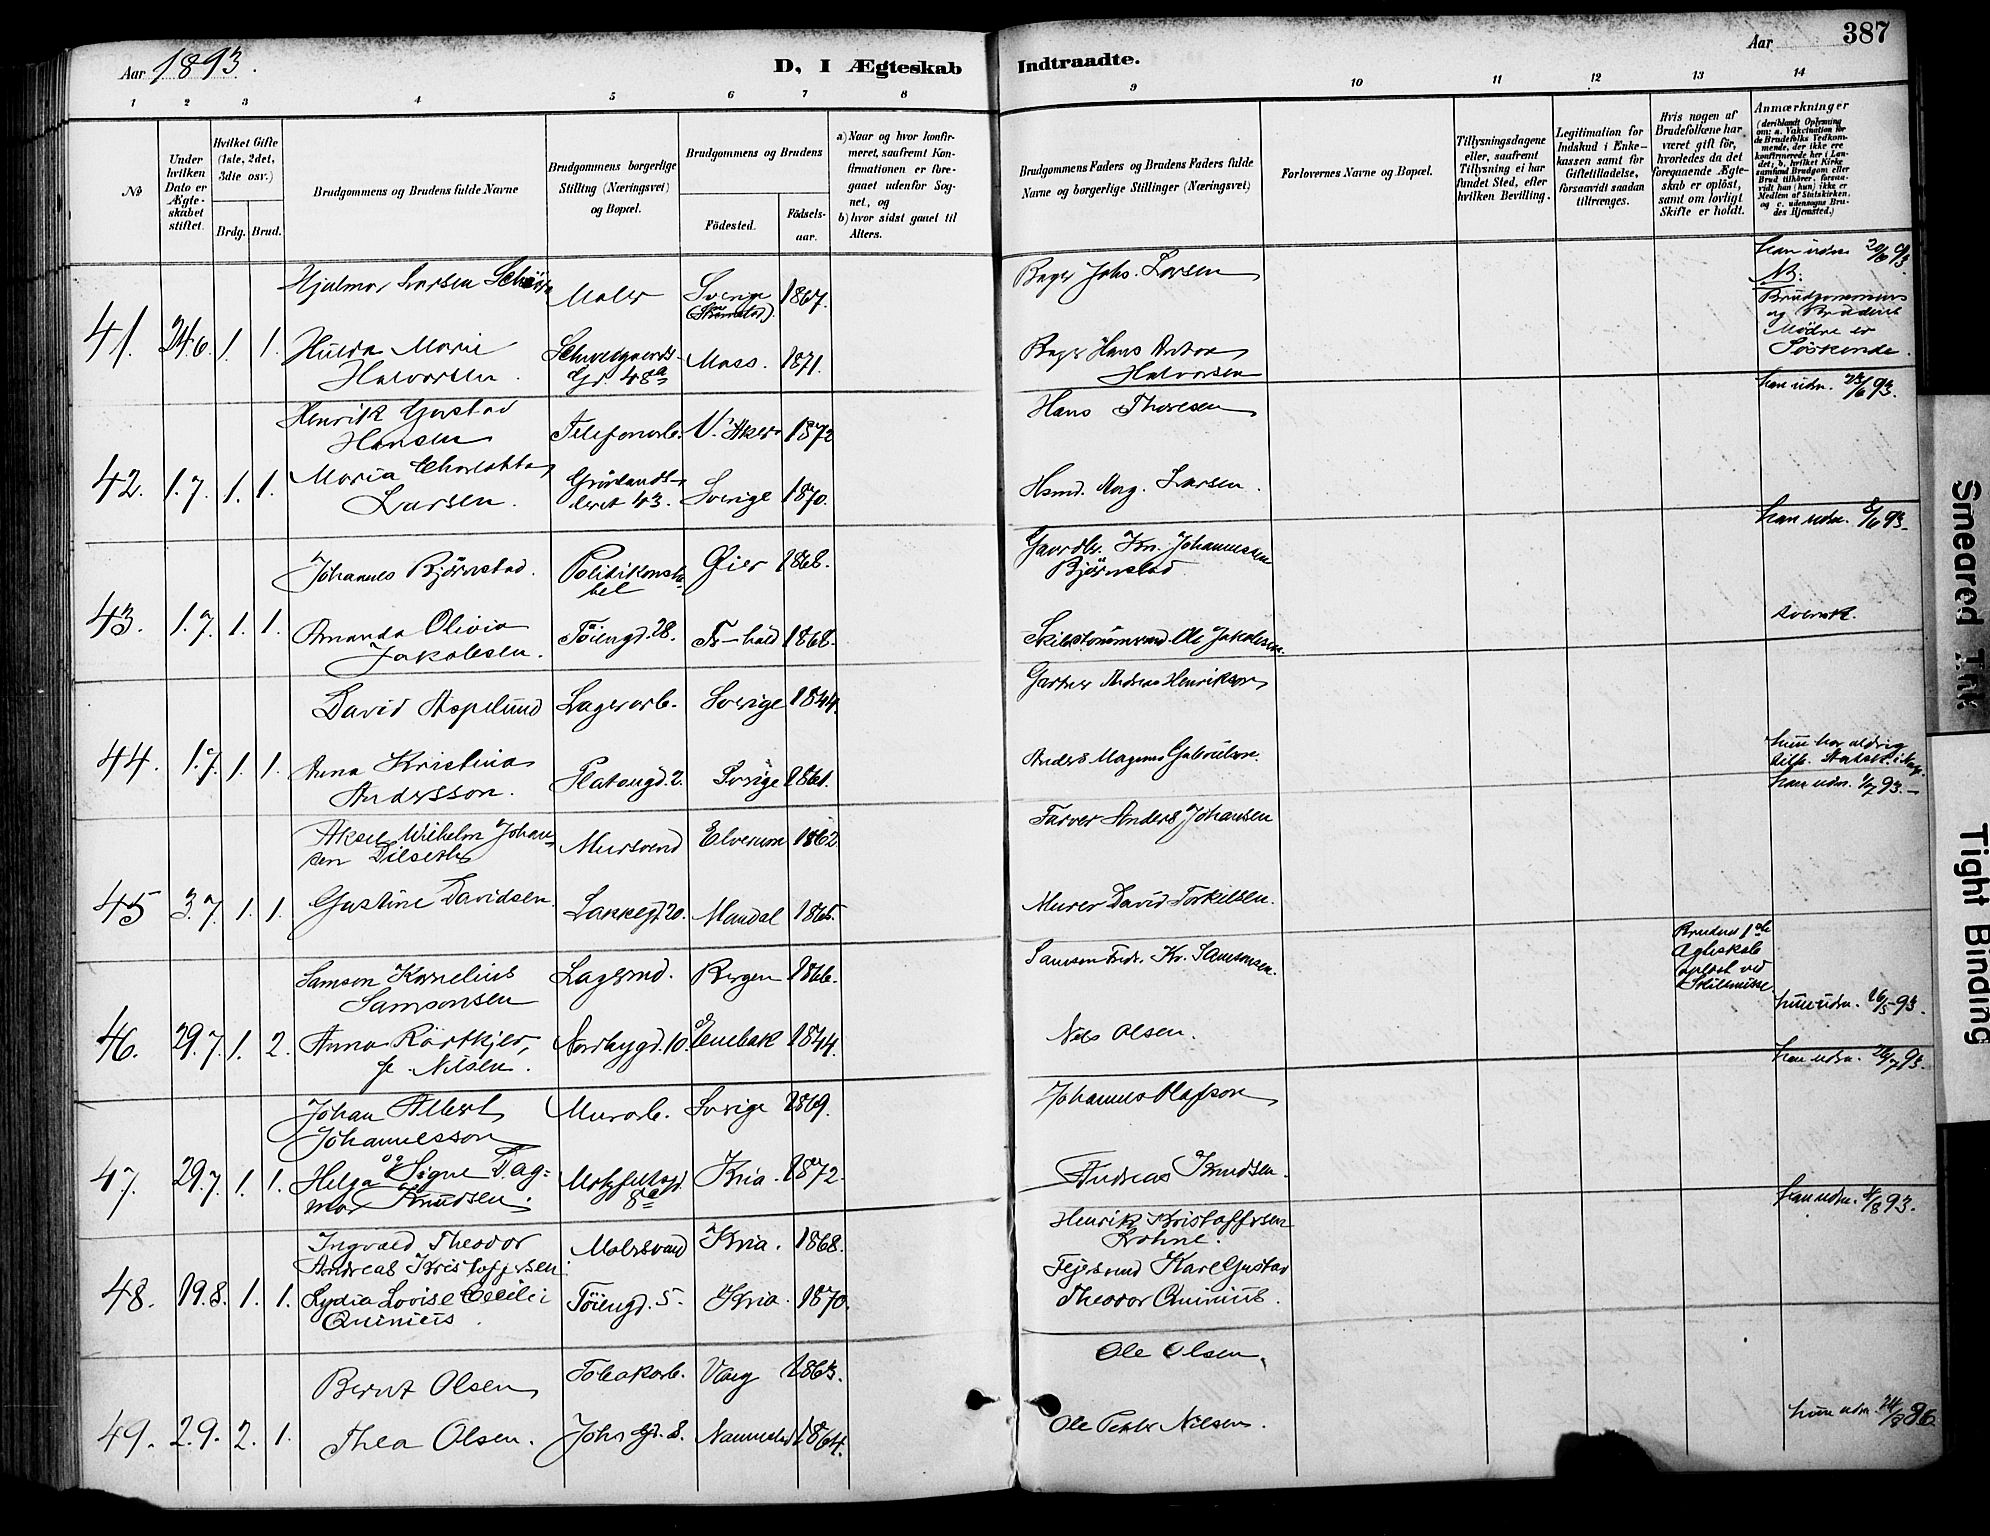 Aar 1893.
D, I Ægteskab
Indtraadte.
Aar
387
1 2 3 4 5 6 7 8
9 10 11 12 13 14
No
Under hvilken Dato er Ægteskabet stiftet.
Hvilket Gifte (1ste, 2det, 3die osv.)
Brdg. Brud.
Brudgommens og Brudens fulde Navne
Brudgommens borgerlige Stilling (Næringsvei) og Bopæl.
Brudgommens og Brudens
Födested.
Födsels-aar.
a) Naar og hvor konfirmeret, saafremt Konfirmationen er foregaaet udenfor Sognet, og
b) hvor sidst gaaet til Alters.
Brudgommens Faders og Brudens Faders fulde Navne og borgerlige Stillinger (Næringsvei)
Forlovernes Navne og Bopæl.
Tillysningsdagene eller, saafremt Tillysning ei har fundet Sted, efter hvilken Bevilling.
Legitimation for Indskud i Enkekassen samt for Giftetilladelse, forsaavidt saadan tiltrænges.
Hvis nogen af Brudefolkene har været gift för, hvorledes da det foregaaende Ægteskab er oplöst, samt om lovligt Skifte er holdt.
Anmærkninger
(deriblandt Oplysning om: a. Vakcination for de Brudefolks Vedkommende, der ikke ere konfirmerede her i Landet; b. hvilket Kirkesamfund Brudgom eller Brud tilhörer, forsaavidt han (hun) ikke er Medlem af Statskirken, og c. udensogns Brudes Hjemsted.)
41. 24.6. 1. 1.
Hjalmar Larsen
Maler
Sverige
1867.
Bager Johs. Larsen
han udm. 20/6 93
NB.
Brudgommens
og Brudens
Mödre er
Söskende.
Hulda Marie
Halvorsen.
Schweigaards-
Gd. 48a
Moss. 1871.
Bager Hans Anton
Halvorsen
42. 1.7. 1. 1.
Henrik Gustav
Hansen
Telefonarb. V. Aker 1872
Hans Thoresen
han udm. 23/6 93.
Maria Charlotta
Larsen.
Grönlands-
leret 43. Sverige 1870.
Hsmd. Mag. Larsen.
43. 1.7. 1. 1.
Johannes Björnstad.
Politikonsta-
bel
Öier 1868.
Gaardbr. Kr. Johannessen
Björnstad
han udm. 8/6 93.
Amanda Olivia
Jakobsen.
Töiengd. 28. Fr-hald 1868.
Skibstömmermd. Ole Jakobsen.
svensk.
44. 1.7. 1. 1.
David Aspelund Lagerarb. Sverige 1844.
Gartner Andreas Henrikson
Anna Kristina
Andersson.
Platousgd. 2. Sverige 1861.
Anders Magnus Gabrielson.
hun har aldrig
tilh. Statsk. i Norge.
han udm. 1/7 93.
45 3.7. 1. 1.
Aksel Wilhelm Johan-
sen Dilseth
Mursvend Elverum 1862
Farver Anders Johansen
Gustine Davidsen.
Lakkegd. 20. Mandal 1865.
Murer David Torkilsen.
46. 29.7. 1. 2.
Samson Kornelius
Samsonsen
Lagermd. Bergen 1866.
Samson Fredr. Kr. Samsonsen.
Brudens 1ste
Ægteskab
oplöst ved
Skilsmisse
hun udm. 26/5 93.
Anna Körtkjer,
f. Nilsen.
Norbygd. 10. Enebak 1844.
Nils Olsen.
47. 29.7. 1. 1.
Johan Albert
Johannesson
Murarb. Sverige 1869.
Johannes Olafson
han udm. 26/7 93.
Helga og Signe Dag-
mar Knudsen.
Motzfeldtsgd.
8a
Kria. 1872.
Andreas Knudsen.
48. 19.8. 1. 1.
Ingvald Theodor
Andreas Kristoffersen.
Malersvend Kria. 1868.
Henrik Kristoffersen
Röhne.
han udm. 4/8 93.
Lydia Lovise Cecilie
Quinius.
Töiengd. 5. Kria. 1870.
Fejersvend Karl Gustav
Theodor Quinius.
49. 2.9. 2. 1.
Bernt Olsen
Tobakarb. Vang 1863.
Ole Olsen.
Thea Olsen.
Johs Gd. 8. Nannestad 1864.
Ole Peter Nilsen.
hun udm.
Smeared Ink
Tight Binding